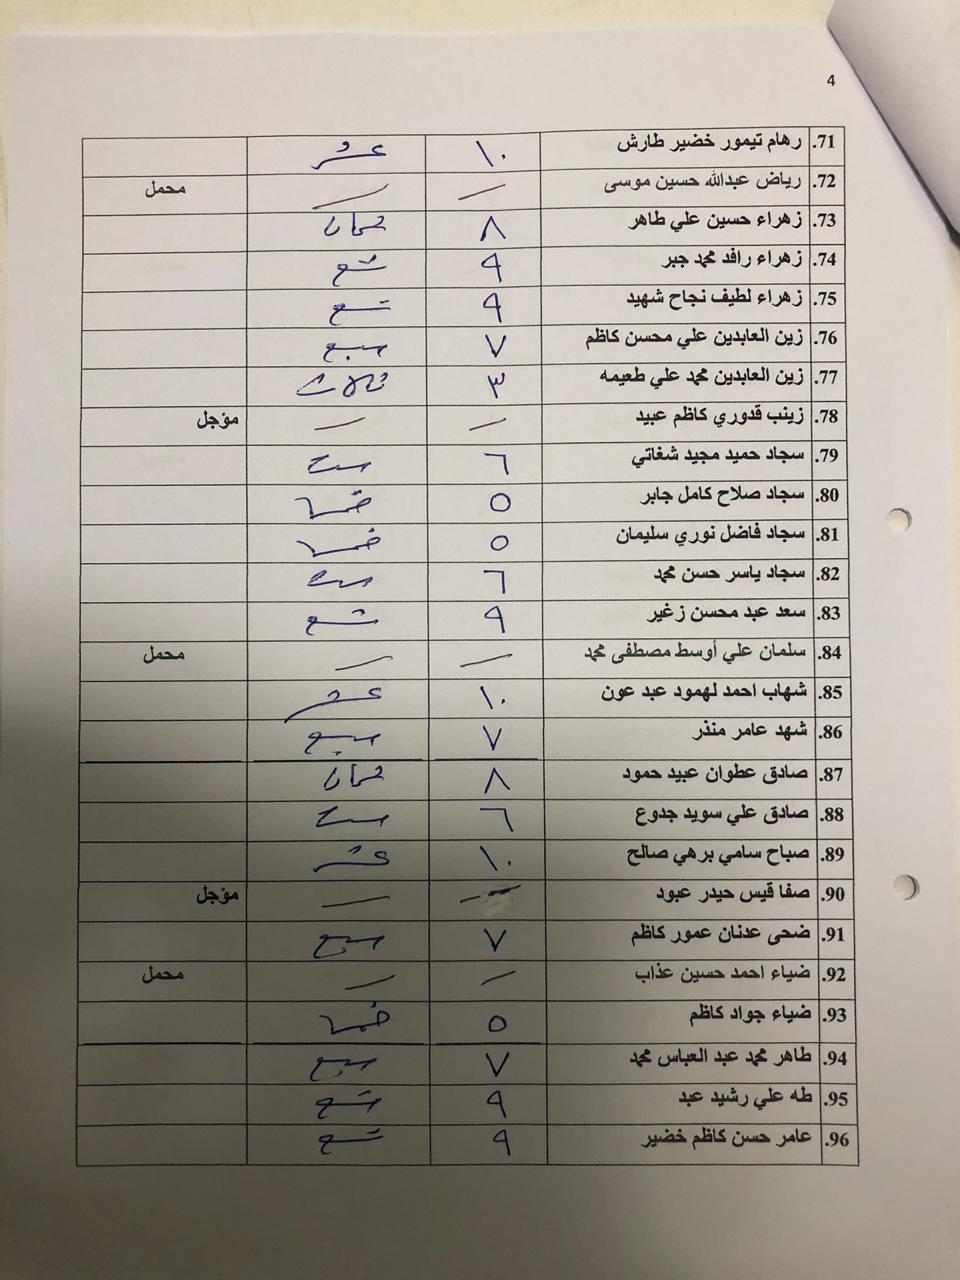 4
71. رهام تيمور خضير طارش ١٠ عشر
72. رياض عبدالله حسين موسى — — محمل
73. زهراء حسين علي طاهر ٨ ثمان
74. زهراء رافد محمد جبر ٩ تسع
75. زهراء لطيف نجاح شهيد ٩ تسع
76. زين العابدين علي محسن كاظم ٧ سبع
77. زين العابدين محمد علي طعيمه ٣ ثلاث
78. زينب قدوري كاظم عبيد — — مؤجل
79. سجاد حميد مجيد شغاتي ٦ ست
80. سجاد صلاح كامل جابر ٥ خمس
81. سجاد فاضل نوري سليمان ٥ خمس
82. سجاد ياسر حسن محمد ٦ ست
83. سعد عبد محسن زغير ٩ تسع
84. سلمان علي أوسط مصطفى محمد — — محمل
85. شهاب احمد لهمود عبد عون ١٠ عشر
86. شهد عامر منذر ٧ سبع
87. صادق عطوان عبيد حمود ٨ ثمان
88. صادق علي سويد جدوع ٦ ست
89. صباح سامي برهي صالح ١٠ عشر
90. صفا قيس حيدر عبود — — مؤجل
91. ضحى عدنان عمور كاظم ٧ سبع
92. ضياء احمد حسين عذاب — — محمل
93. ضياء جواد كاظم ٥ خمس
94. طاهر محمد عبد العباس محمد ٧ سبع
95. طه علي رشيد عبد ٩ تسع
96. عامر حسن كاظم خضير ٩ تسع